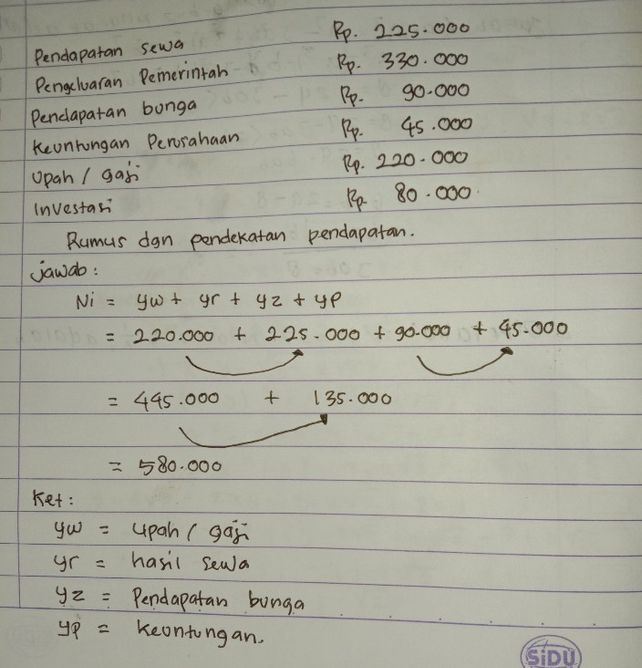 Pendapatan sewa Rp. 225.000
Pengeluaran Pemerintah Rp. 330.000
Pendapatan bunga Rp. 90.000
Keuntungan Perusahaan Rp. 45.000
Upah / gaji Rp. 220.000
Investasi Rp. 80.000.
Rumus dgn pendekatan pendapatan.
Jawab:
Ni = yw + yr + yz + yp
= 220.000 + 225.000 + 90.000 + 45.000
= 445.000 + 135.000
= 580.000
Ket:
yw = upah / gaji
yr = hasil sewa
yz = Pendapatan bunga
yp = keuntungan.
SiDU